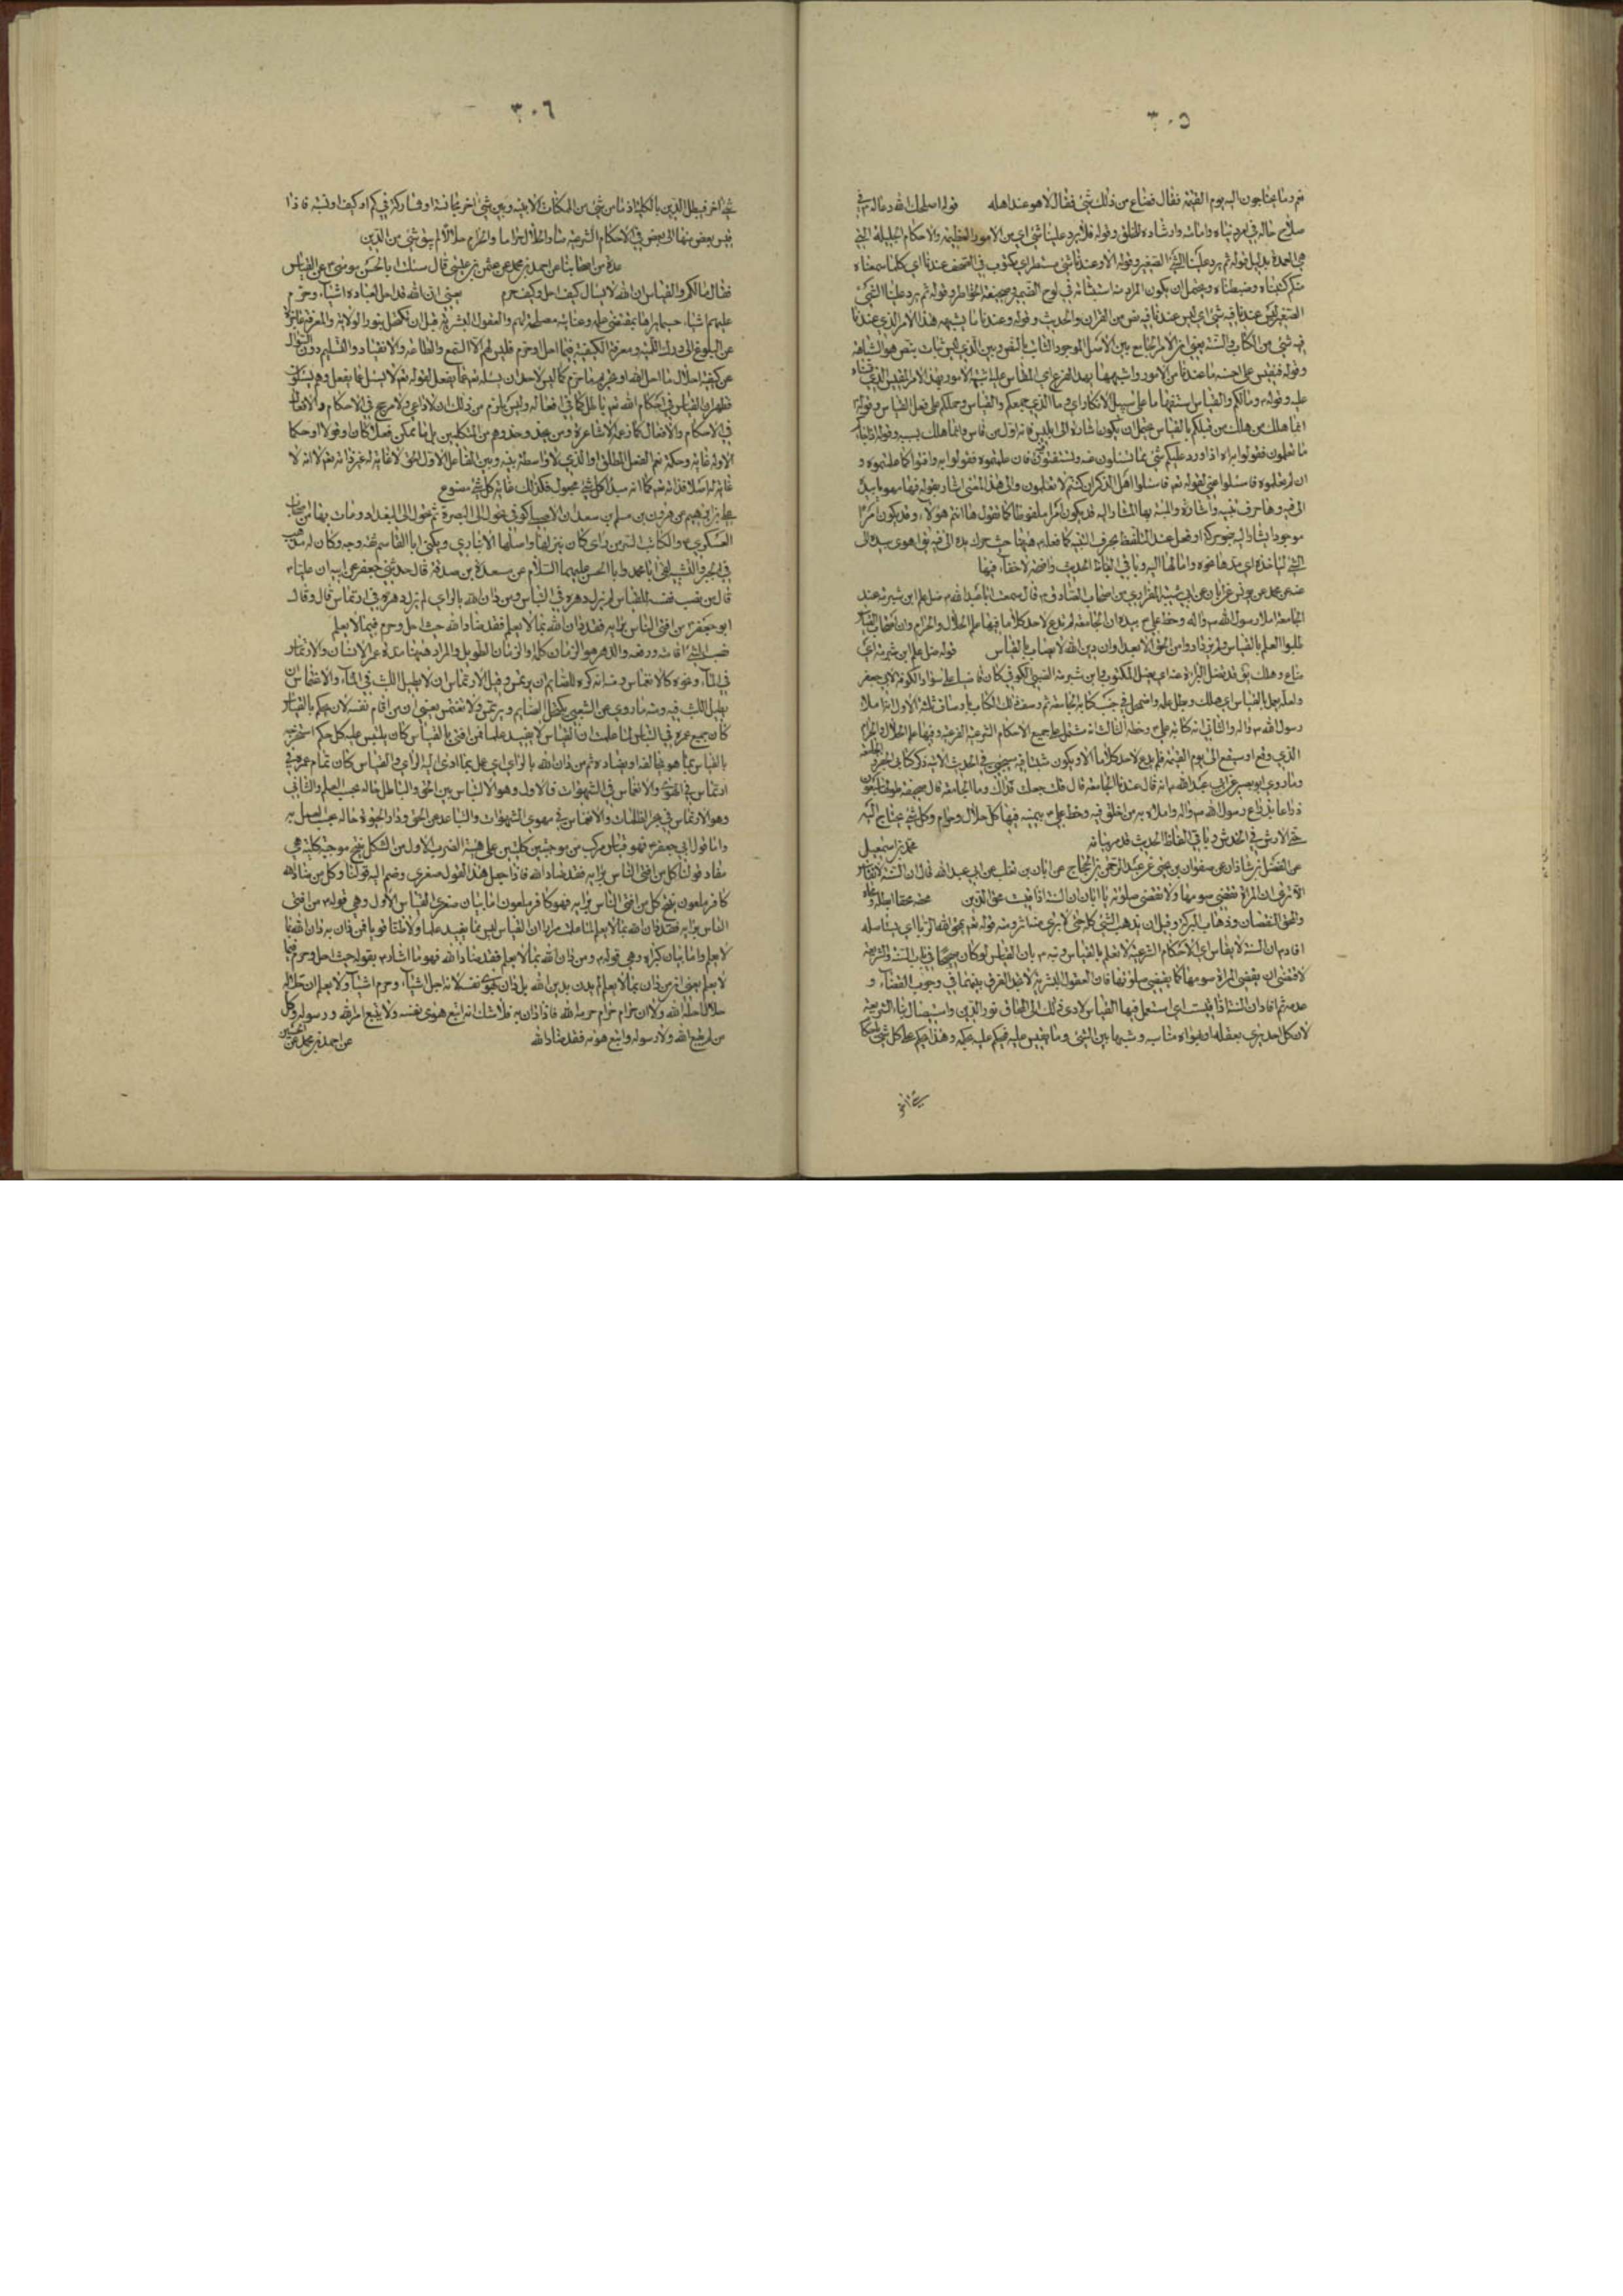 ٣٠٥
ثم وما يحتاجون اليه يوم القيمة فقال فضاع من ذلك شئ فقال لا هو عند اهله قوله اصلحك الله دعا له في
صلاح حاله في امر دنياه وامامته وارشاده للخلق وقوله فلا يرد علينا شئ اي من الامور العظيمة والاحكام الجليلة التي
هي العمدة بدليل قوله ثم يرد علينا الشئ الصغير وقوله الا وعندنا شئ مسطر اي مكتوب في الصحف عندنا اي كلما سمعناه
منكم كتبناه وضبطناه ويحتمل ان يكون المراد منه استثباته في لوح الضمير وصحيفة الخاطر وقوله ثم يرد علينا الشئ
الصغير ليس عندنا فيه شئ اي ليس عندنا فيه نص من القران والحديث وقوله وعندنا ما يشبهه هذا الامر الذي عندنا
فيه شئ من الكتاب والسنة يعني امر الامر الجامع بين الاصل الموجود الثابت بالنص وبين الذي ليس ثابت بنص هو المشابهة
وقوله فنقيس على احسنه ما عندنا من الامور واشبهها بهذا الفرع اي المقاس عليه اشبه الامور بهذا الامر المقيس الذي
عليه وقوله وما لكم والقياس استفهام على سبيل الانكار اي وما الذي جمعكم والقياس وحملكم على فعل القياس وقوله
انما هلك من هلك من قبلكم بالقياس يحتمل ان يكون اشارة الى ابليس فانه اول من قاس وانما هلك بسببه وقوله اذا جاءكم
ما تعلمون فقولوا به اي اذا ورد عليكم شئ مما تسئلون عنه وتستفتون فان علمتموه فقولوا به وافتوا كما علمتموه و
ان لم تعلموه فاسئلوا عني لقوله تعالى فاسئلوا اهل الذكر ان كنتم لا تعلمون والى هذا المعنى اشار بقوله فها مهوما بيده
الى فيه وها حرف تنبيه واشارة والمنبه بها المشار اليه قد يكون امرا ملفوظا كما تقول ها انتم هؤلاء وقد يكون امرا
موجودا يشار اليه بحركة او فعل عند التلفظ بحرف التنبيه كما فعله ههنا حيث حرك يده الى فيه يقال اهوى بيده الى
الشئ لياخذه اي مدها نحوه وامالها اليه وباقي الفاظ الحديث واضحة لا خفاء فيها
عنه عن محمد عن يونس عن ابان عن ابي شيبة الفزاري من اصحاب الصادق قال سمعت ابا عبد الله يقول ضل علم ابن شبرمة عند
الجامعة املاء رسول الله وخط علي بيده ان الجامعة لم تدع لاحد كلاما فيها علم الحلال والحرام وان اصحاب القياس
طلبوا العلم بالقياس فلم يزدادوا من الحق الا بعدا وان دين الله لا يصاب بالقياس قوله ضل علم ابن شبرمة اي
رسول الله والثاني انه كتابة علي وخطه الثالث انه مشتمل على جميع الاحكام الشرعية الفرعية وفيها علم الحلال والحرام
الذي وقع او سيقع الى يوم القيمة فلم يدع لاحد كلاما الا ويكون شيئا فيه
وما روى ابو بصير عن ابي عبد الله انه قال عندنا الجامعة قال قلت جعلت فداك وما الجامعة قال صحيفة طولها سبعون
ذراعا بذراع رسول الله واملائه من فلق فيه وخط علي بيمينه فيها كل حلال وحرام وكل شئ يحتاج اليه
حتى الارش في الخدش وباقي الفاظ الحديث قد مر بيانه محمد بن اسمعيل
عن الفضل بن شاذان عن صفوان بن يحيى عن عبد الرحمن بن الحجاج عن ابان بن تغلب عن ابي عبد الله قال ان السنة لا تقاس
الا ترى ان المراة تقضي صومها ولا تقضي صلوتها يا ابان ان السنة اذا قيست محق الدين محقه محقا ابطله ومحاه
والمحق النقصان وذهاب البركة وقيل ان يذهب الشئ كله حتى لا يرى منه اثر ومنه قوله تعالى يمحق الله الربا اي يستاصله
افاد ان السنة لا يقاس اي الاحكام الشرعية لا تعلم بالقياس
لاقتضى ان يقضى المراة صومها كما يقضى صلوتها فان العقول البشرية لا تجد الفرق بينهما في وجوب القضاء و
عدمه ثم افاد ان السنة اذا قيست اي استعمل فيها القياس لادى ذلك الى انمحاق نور الدين واستيصال بناء الشريعة
لان كل احد يرى بعقله او بهواه مناسبة وشبها بين الشئ وما يقيس عليه فيحكم عليه بحكمه وهذا يحكم على كل شئ
شئ اخر
٣٠٦
شئ اخر فيبطل الدين بالكلية اذ ما من شئ من الممكنات الا بينه وبين شئ اخر مجانسة او مشاركة في كم او كيف او نسبة فاذا
قيس بعض منها الى بعض في الاحكام الشرعية صار الحلال حراما والحرام حلالا لم يبق شئ من الدين
عدة من اصحابنا عن احمد بن محمد عن عثمن بن عيسى قال سئلت ابا الحسن موسى عن القياس
فقال ما لكم والقياس ان الله لا يسال كيف احل وكيف حرم يعني ان الله قد احل لعباده اشياء وحرم
عليهم اشياء حسبما يراها بمقتضى علمه وعنايته مصلحة لهم والعقول البشرية قبل ان تكتحل بنور الولاية والمعرفة عاجزة
عن البلوغ الى درك اللمية ومعرفة الكيفية فيما احل وحرم فليس لهم الا السمع والطاعة والانقياد والتسليم دون السؤال
عن كيفية احلال ما احل الله او تحريم ما حرم كما ليس لاحد ان يسئله تعالى عما يفعل لقوله تعالى لا يسئل عما يفعل وهم يسئلون
فظهر ان القياس في احكام الله تعالى باطل كما في افعاله وليس يلزم من ذلك ان لا داعي ولا مرجح في الاحكام والافعال
في الاحكام والافعال كما زعمه الاشاعرة ومن يحذو حذوهم من المتكلمين بل ما يمكن فعلا كان او قولا او حكما
الا وله غاية وحكمة
غاية له اصلا فذاته تعالى كما انه مبدا كل شئ مجعول فكذلك غاية كل شئ مصنوع
علي بن ابرهيم عن هرون بن مسلم بن سعدان الاصل كوفي تحول الى البصرة ثم تحول الى بغداد ومات بها من اصحاب
العسكري والكاتب السرمن راى كان نزلها واصلها الانباري ويكنى ابا القاسم ثقة وجه وكان له مذهب
في الجبر والتشبيه لقى ابا محمد وابا الحسن عليهما السلام عن مسعدة بن صدقة قال حدثني جعفر عن ابيه ان عليا
قال من نصب نفسه للقياس لم يزل دهره في التباس ومن دان الله بالراي لم يزل دهره في ارتماس قال وقال
ابو جعفر من افتى الناس برايه فقد دان الله بما لا يعلم فقد ضاد الله حيث احل وحرم فيما لا يعلم
نصب الشئ اقامته ورفعه والدهر هو الزمان كله او الزمان الطويل والمراد ههنا مدة عمر الانسان والارتماس
في الماء ونحوه كالانغماس ومنه انه كره للصايم ان يرتمس وقيل الارتماس ان لا يطيل اللبث في الماء والاغتماس ان
يطيل اللبث فيه ومنه ما روي عن الشعبي يكتحل الصايم ويرتمس ولا يغتمس يعني ان من اقام نفسه لان يحكم بالقياس
كان جميع عمره في التباس لما علمت ان القياس لا يفيد علما فمن افتى بالقياس كان يلتبس عليه كل حكم استخرجه
بالقياس بما هو يخالفه او يضاده ثم من دان الله بالراي اي عمل بما ادى اليه الراي والقياس كان تمام عمره في
ارتماس في الهوى والانغماس في الشهوات فالاول وهو الالتباس بين الحق والباطل حاله بحسب العلم والثاني
وهو الارتماس في بحر الظلمات والانغماس في مهوى الشهوات والتباعد عن الحق ودار الحيوة حاله بحسب العمل به
واما قول ابي جعفر فهو قياس مركب من موجبتين كليتين على هيئة الضرب الاول من الشكل ينتج موجبة كلية هي
مفاد قولنا كل من افتى الناس برايه فقد ضاد الله فاذا جعل هذا القول صغرى وضم اليه قولنا وكل من ضاد الله
كافر ملعون ينتج كل من افتى الناس برايه فهو كافر ملعون اما بيان صغرى القياس الاول وهي قوله من افتى
الناس برايه فقد دان الله بما لا يعلم لما علمت مرارا ان القياس ليس مما يفيد علما ولا ظنا قويا فمن دان به دان الله بما
لا يعلم واما بيان كبراه وهي قوله ومن دان الله بما لا يعلم فقد ضاد الله فهو ما اشار بقوله حيث احل وحرم فيما
لا يعلم يعني ان من دان بما لا يعلم لم يدن بدين الله بل دان بهوى نفسه لانه احل اشياء وحرم اشياء ولا يعلم ان حلاله
حلال احله الله ولا ان حرامه حرام حرمه الله فاذا دان به فلا شك انه اتبع هوى نفسه ولا يتبع امر الله ورسوله وكل
من لم يتبع الله ولا رسوله واتبع هويه فقد ضاد الله عن احمد بن محمد عن